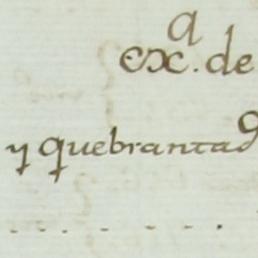 exᵃ. de
y quebrantad